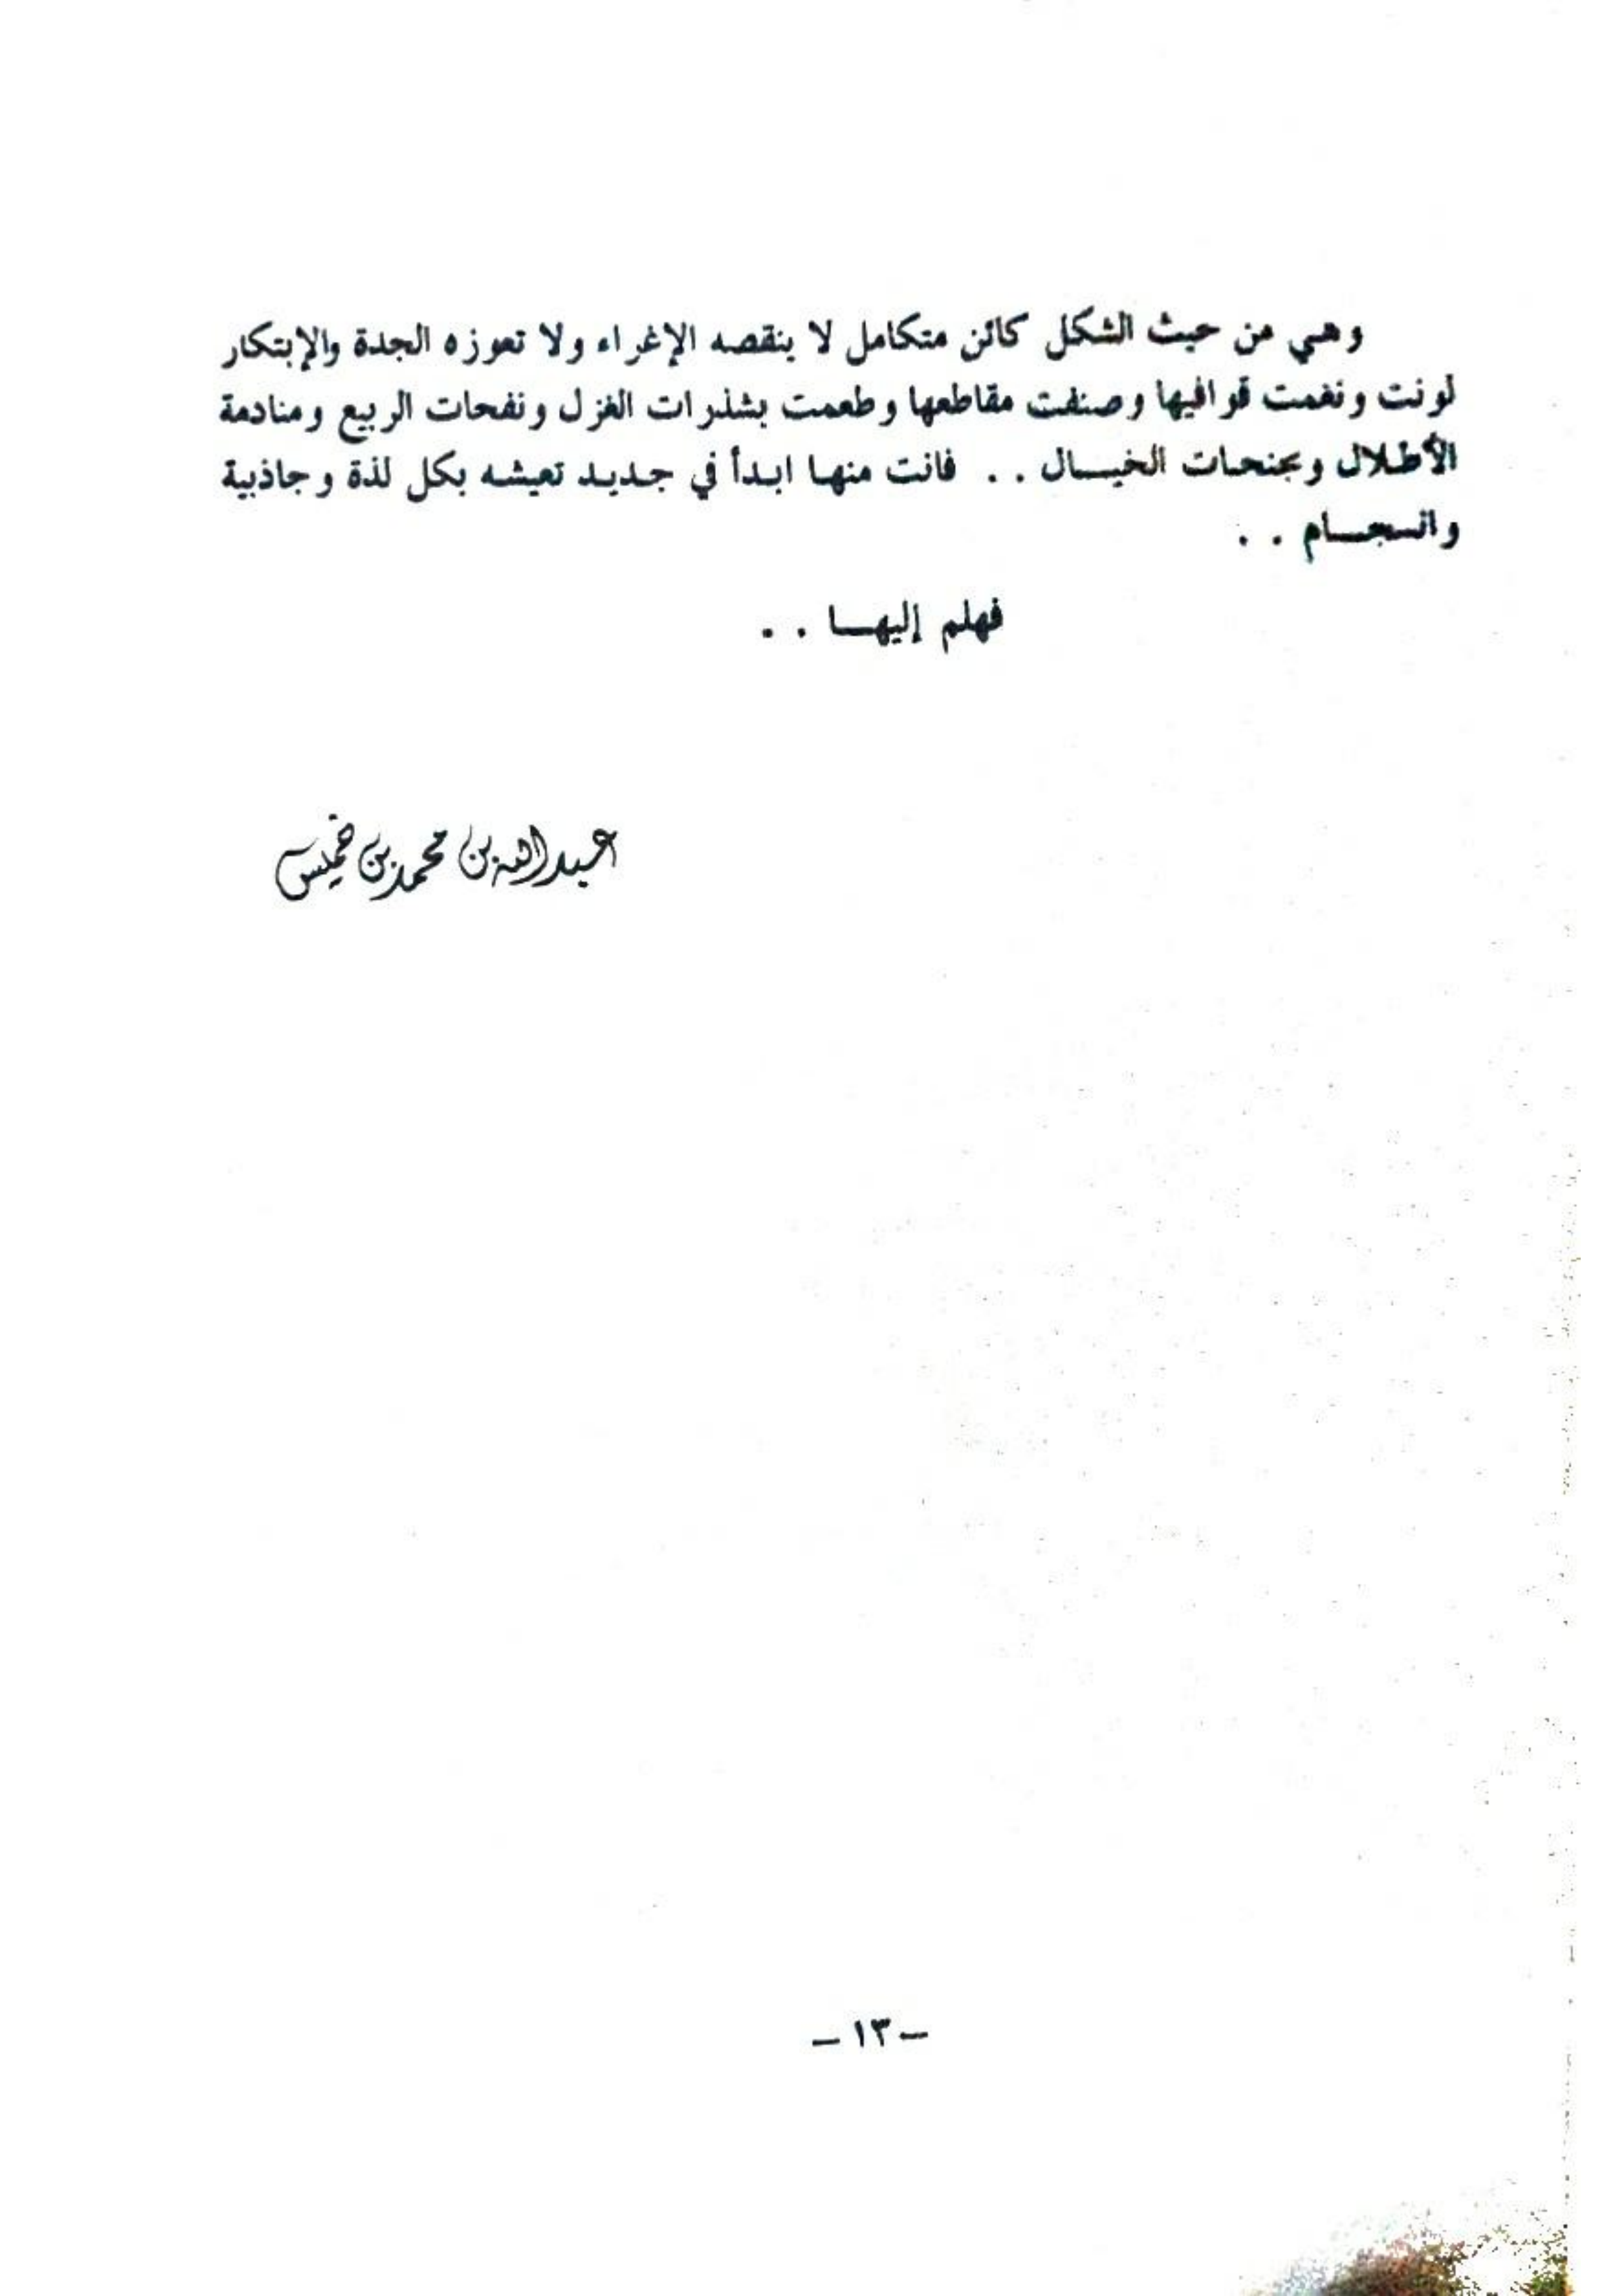 وهي من حيث الشكل كائن متكامل لا ينقصه الإغراء ولا تعوزه الجدة والإبتكار
لونت ونغمت قوافيها وصنفت مقاطعها وطعمت بشذرات الغزل ونفحات الربيع ومنادمة
الأطلال ومجنحات الخيال . . فانت منها ابدأ في جديد تعيشه بكل لذة وجاذبية
وانسجام . .
فهلم إليها . .
عبدالله بن محمد بن خميس
– ١٣ –